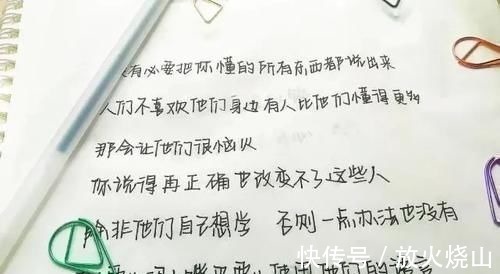 没有必要把你懂的所有东西都说出来
人们不喜欢他们身边有人比他们懂得更多
那会让他们很恼火
你说得再正确也改变不了这些人
除非他们自己想学 否则一点办法也没有
使用他们的语
快传号/放火烧山